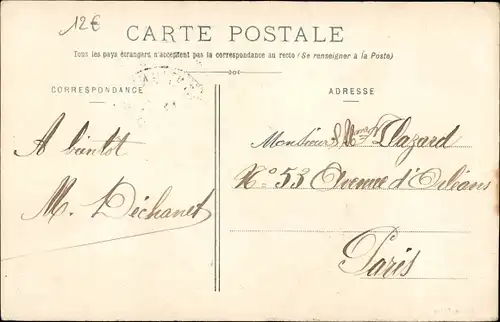 12€
CARTE POSTALE
Tous les pays étrangers n'acceptent pas la correspondance au recto (Se renseigner à la Poste)
CORRESPONDANCE
A bientot
M. Déchanet
ADRESSE
Monsieur & Mme Dazard
No 53 Avenue d'Orléans
Paris